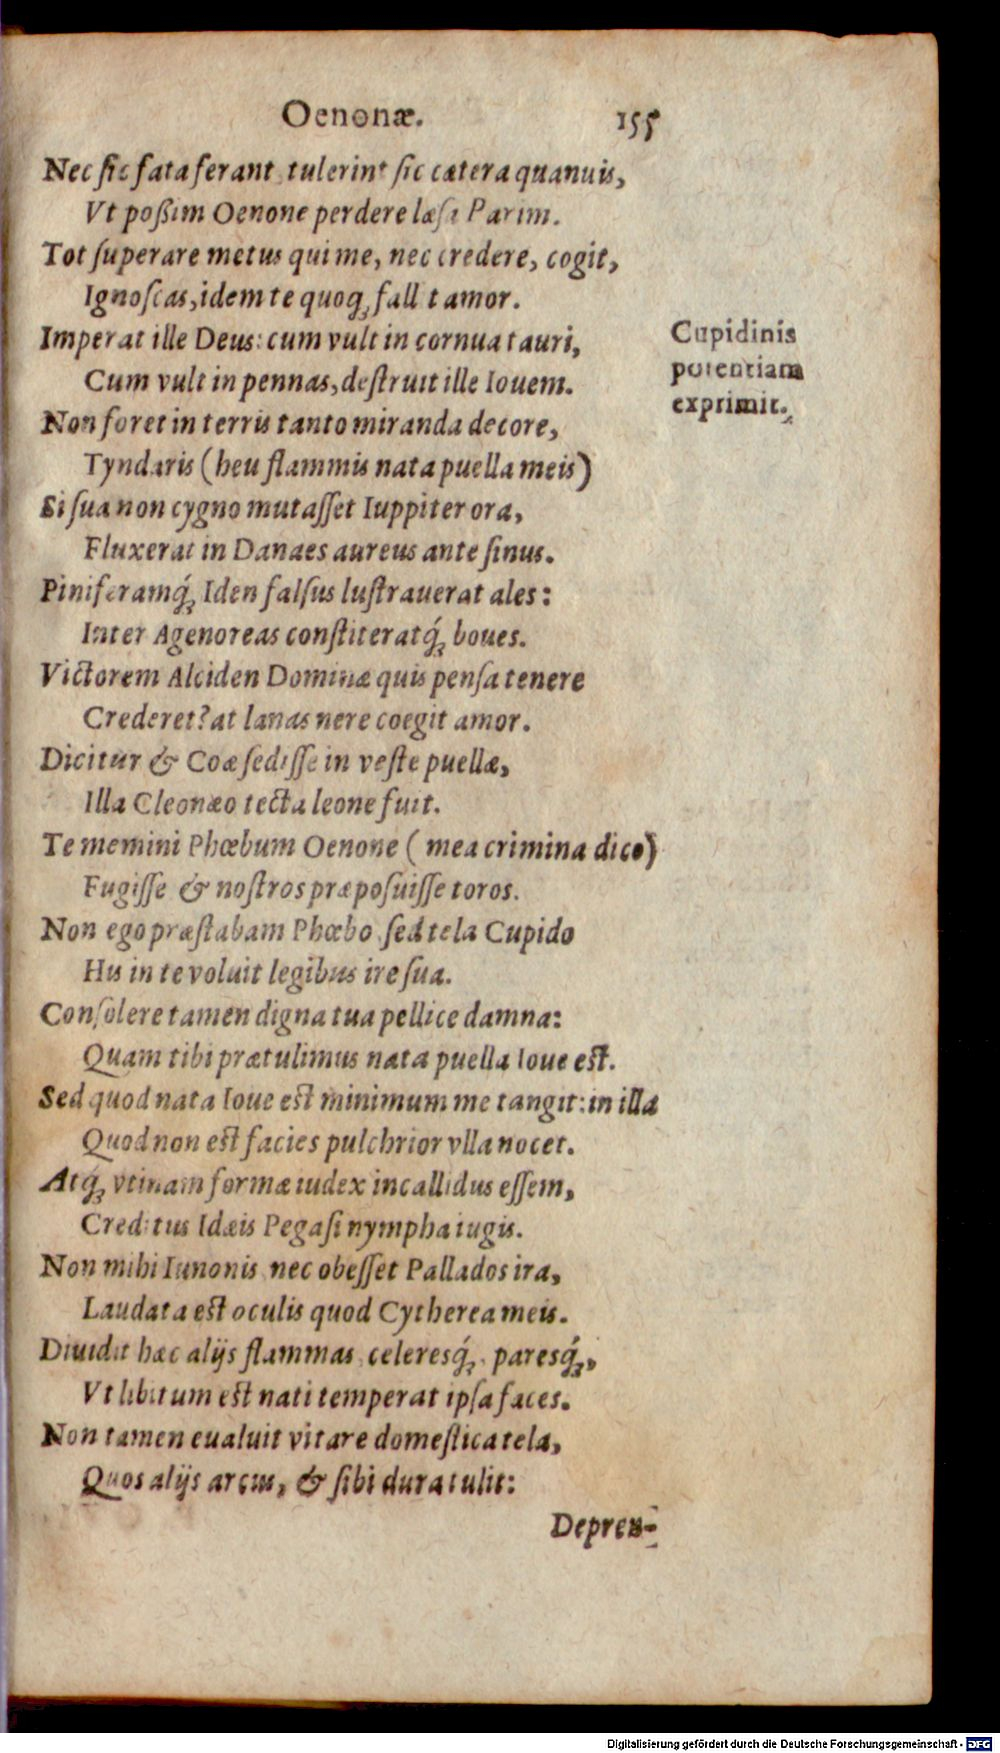 Oenonæ. 155
Nec sic fata ferant, tulerint sic cætera quamuis,
Vt poßim Oenone perdere læsa Parim.
Tot superare metus qui me, nec credere, cogit,
Ignoscas, idem te quoq; fallit amor.
Imperat ille Deus: cum vult in cornua tauri,
Cum vult in pennas, destruit ille Iouem.
Non foret in terris tanto miranda decore,
Tyndaris (heu flammis nata puella meis)
Si sua non cygno mutasset Iuppiter ora,
Fluxerat in Danaes aureus ante sinus.
Piniferamq́; Iden falsus lustrauerat ales:
Inter Agenoreas constiteratq́; boues.
Victorem Alciden Dominæ quis pensa tenere
Crederet? at lanas nere coegit amor.
Dicitur & Coæ sedisse in veste puellæ,
Illa Cleonæo tecta leone fuit.
Te memini Phœbum Oenone ( mea crimina dico)
Fugisse & nostros præposuisse toros.
Non ego præstabam Phœbo, sed tela Cupido
His in te voluit legibus ire sua.
Consolere tamen digna tua pellice damna:
Quam tibi prætulimus nata puella Ioue est.
Sed quod nata Ioue est minimum me tangit: in illa
Quod non est facies pulchrior vlla nocet.
Atq́; vtinam formæ iudex incallidus essem,
Creditus Idæis Pegasi nympha iugis.
Non mihi Iunonis, nec obesset Pallados ira,
Laudata est oculis quod Cytherea meis.
Diuidit hæc alijs flammas, celeresq́;, paresq́;,
Vt libitum est nati temperat ipsa faces.
Non tamen eualuit vitare domestica tela,
Quos alijs arcus, & sibi dura tulit:
Depren-
Cupidinis
potentiam
exprimit.
Digitalisierung gefördert durch die Deutsche Forschungsgemeinschaft - DFG